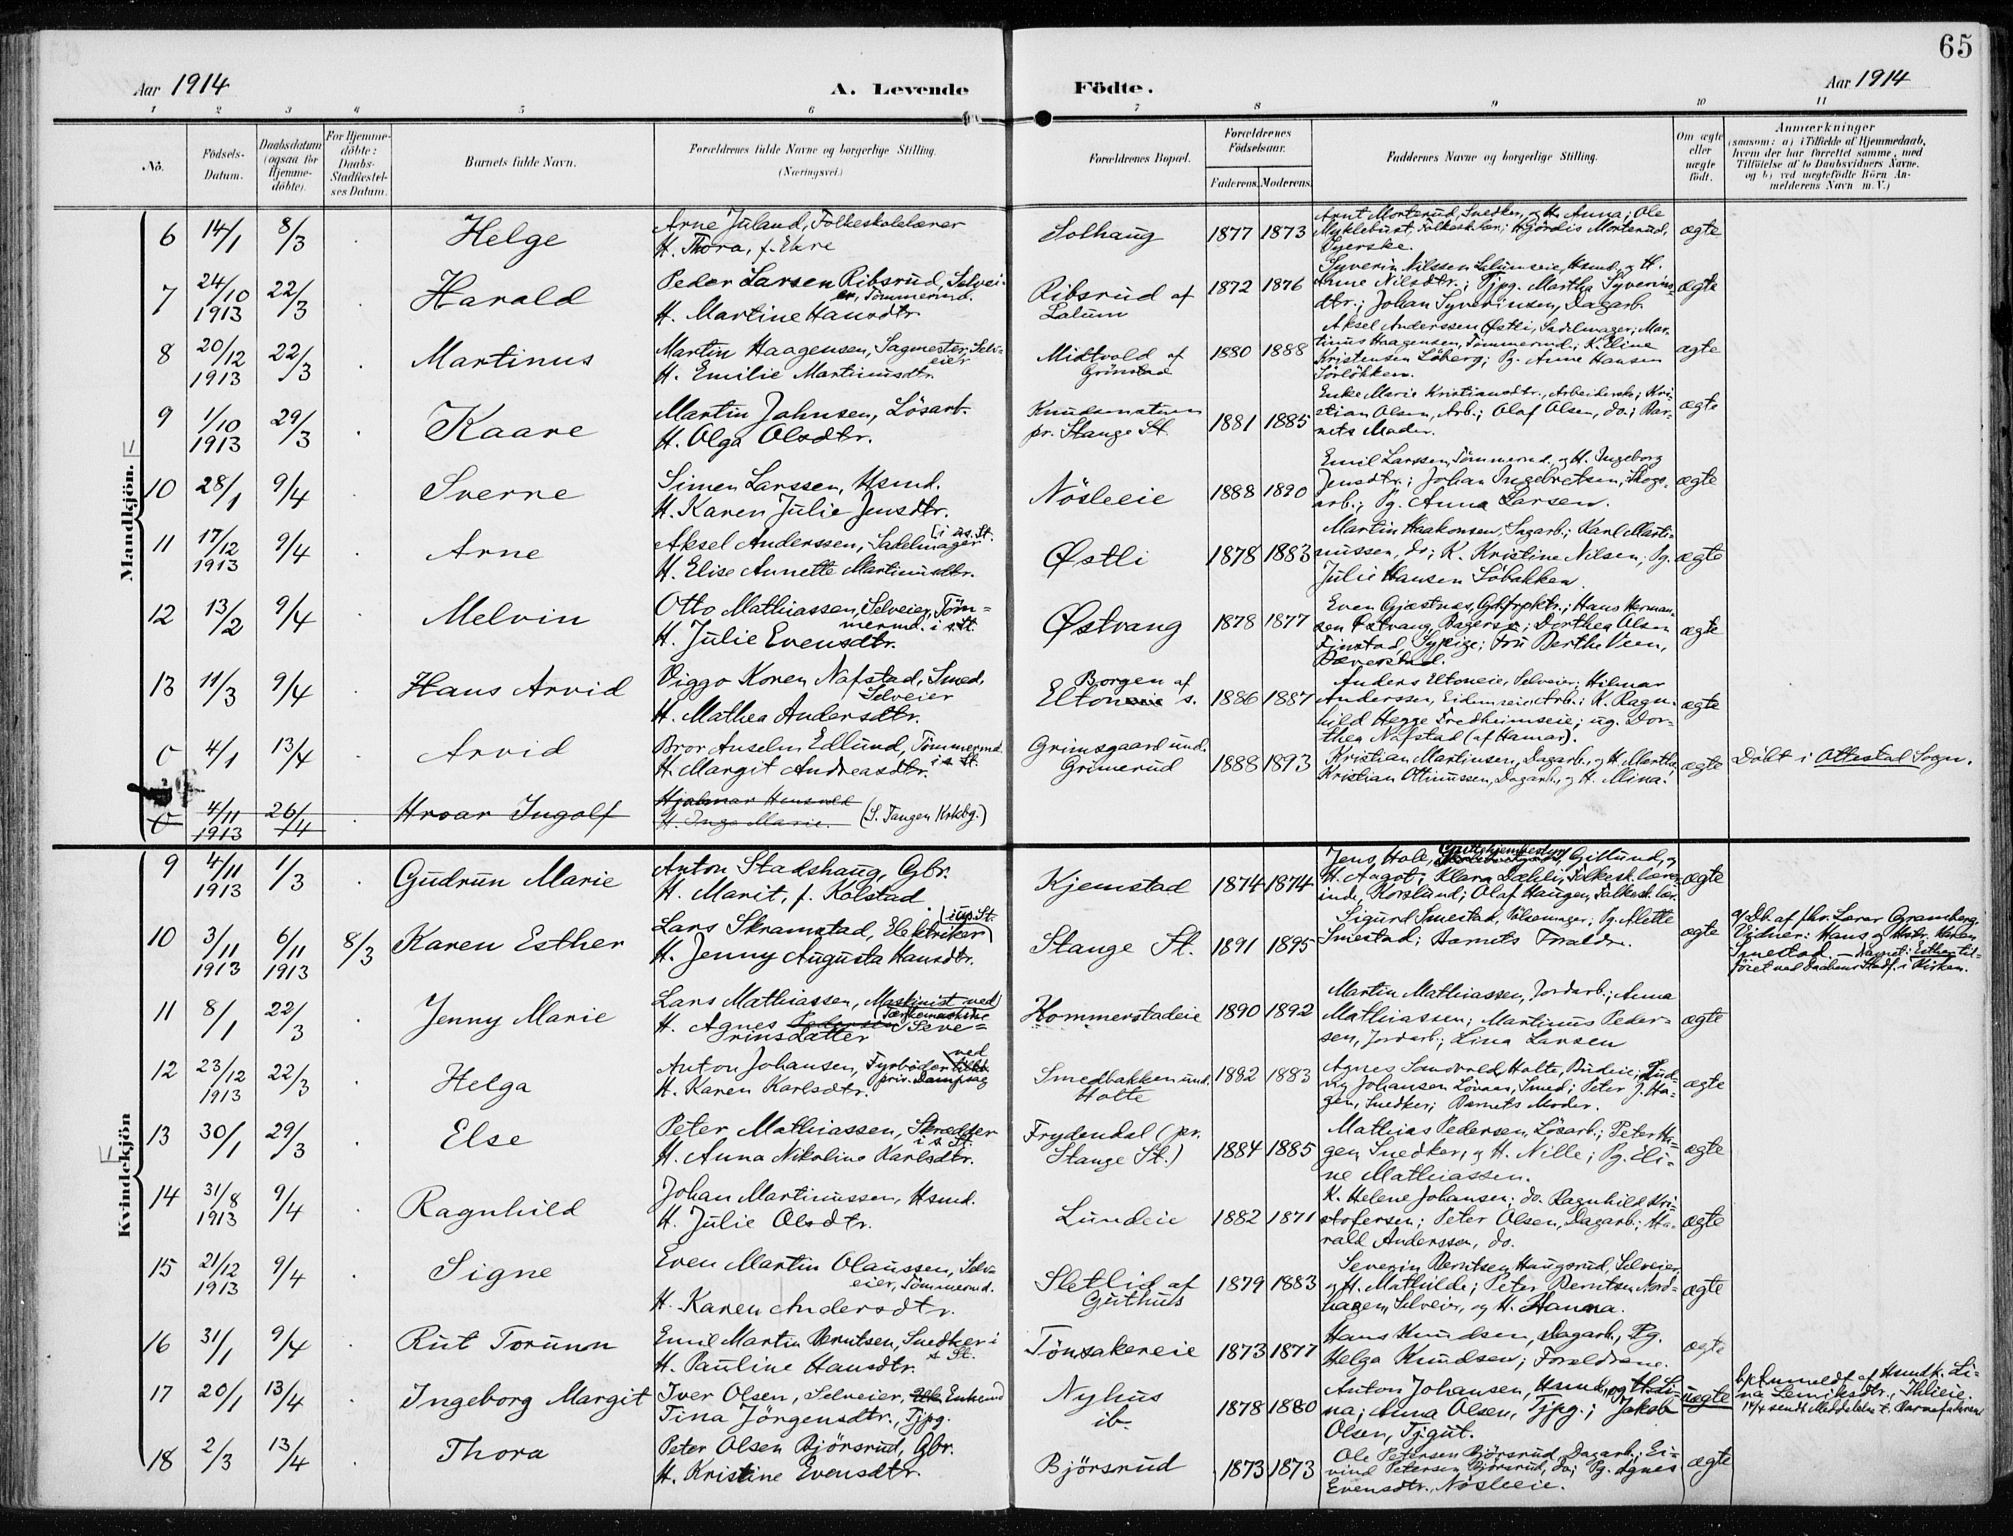 65
Aar 1914
A. Levende
Födte.
Aar 1914
1 2 3 4 5 6 7 8 9 10 11
No.
Födsels-Datum.
Daabsdatum (ogsaa for Hjemmedöbte).
For Hjemmedöbte: Daabs-Stadfæstelses Datum.
Barnets fulde Navn.
Forældrenes fulde Navne og borgerlige Stilling.
(Næringsvei.)
Forældrenes Bopæl.
Forældrenes Födselsaar.
Faderens. Moderens.
Faddernes Navne og borgerlige Stilling.
Om ægte eller uægte födt.
Anmærkninger
(saasom: a) i Tilfælde af Hjemmedaab, hvem der har forrettet samme, med Tilföielse af to Daabsvidners Navne, og b) ved uægtefödte Börn Anmelderens Navn m. V.)
Mandkjön.
6 14/1 8/3 . Helge
Arne Juland, Folkeskolelærer
H. Thora, f. Ekre
Solhaug 1877 1873
Arnt Morterud, Snedker, og H. Anna; Ole
Myklebust, Folkesk.lær.; Hjördis Morterud,
Syerske.
ægte
7 24/10 1913 22/3 . Harald
Peder Larsen Ribsrud, Selvei-
er, Tömmermd.
H. Martine Hansdtr.
Ribsrud af
Lalum
1872 1876
Syverin Nilssen Lalumseie, Hsmd., og H.
Anne Nilsdtr.; Tjpg. Martha Syverins-
dtr.; Johan Syverinsen, Dagarb.
ægte
8 20/12 1913 22/3 . Martinus
Martin Haagensen, Sagmester, Selv-
eier
H. Emilie Martinusdtr.
Midtvold af
Grönstad
1880 1888
Aksel Anderssen Østli, Sadelmager; Mar-
tinus Haagensen, Tömmermd.; K. Eline
Kristensen Löberg; Pg. Anne Hansen
Sörlökken.
ægte
9 1/10 1913 29/3 . Kaare
Martin Johnsen, Lösarb.
H. Olga Olsdtr.
pr. Stange St.
1881 1885
Enke Marie Kristiansdtr., Arbeiderske; Kri-
stian Olsen, Arb.; Olaf Olsen, do.; Bar-
nets Moder.
ægte
10 28/1 9/4 . Sverre
Simen Larssen, Hsmd.
H. Karen Julie Jensdtr.
Nösleeie 1888 1890
Emil Larssen, Tömmermd., og H. Ingeborg
Jensdtr.; Johan Ingebretsen, Skogs-
arb.; Pg. Anna Larsen.
ægte
11 17/12 1913 9/4 . Arne
Aksel Anderssen, Sadelmager
H. Elise Annette Martinusdtr.
Østli 1878 1883
Martin Haakonsen, Sagarb.; Karl Marti-
nussen, do; K. Kristine Nilsen; Pg.
Julie Hansen Söbakken.
ægte
12 13/2 9/4 . Melvin
Otto Mathiassen, Selveier, Töm-
mermd. i s. St.
H. Julie Evensdtr.
Østvang 1878 1877
Even Gjæstnes, Hans Herman-
sen Østvang, Bagersv.; Dorthea Olsen
Finstad, Sypige; Fru Berthe Veen,
Bæverstad.
ægte
13 11/3 9/4 . Hans Arvid
Viggo Koren Nafstad, Smed,
Selveier
H. Mathea Andersdtr.
Borgen af
Eltoneie s.
1886 1887
Anders Eltoneie, Selveier; Hilmar
Anderssen, Arb.; K. Ragn-
hild Hegge Fredheimseie; ug. Dor-
thea Nafstad (af Hamar).
ægte
0 4/1 13/4 Arvid
Bror Anselm Edlund, Tömmermd.
i s. St.
H. Margit Andreasdtr.
Grimsgaard und.
Grimerud
1888 1893
Kristian Martinsen, Dagarb., og H. Martha;
Kristian Ottinussen, Dagarb., og H. Mina.
ægte
Döbt i Ottestad Sogn.
0 4/11 1913 26/4 . Hroar Ingolf
Hjalmar
H. Inga Marie.
(S. Tangen Krkbg.)
Kvindekjön
9 4/11 1913 1/3 . Gudrun Marie
Anton Stadshaug, Gbr.
H. Marit, f. Kolstad
Kjemstad 1874 1874
Jens Hole, Gillund, og
H. Aagot; Klara Dæhli, Folkesk.lærer-
inde, Korslund; Olaf Haugen, Folkesk.lær.
ægte
10 3/11 1913 6/11 1913 8/3 Karen Esther
Lars Skramstad, Elektriker
H. Jenny Augusta Hansdtr.
Stange St. 1891 1895
Sigurd Smestad, Pölsemager; Pg. Alette
Smestad; Barnets Forældre.
ægte
a) Db. af fhv. Lærer Gramberg.
Vidner: Hans og Hstr. Karen
Smestad. — Navnet: Esther til-
föiet ved Daabens Stadf. i Kirken.
11 8/1 22/3 . Jenny Marie
Lars Mathiassen, Maskinist ved
Tærskemaskine
H. Agnes Pedersen Seve-
rinsdatter
Hommerstadeie 1890 1892
Martin Mathiassen, Jordarb.; Anna
Mathiassen; Martinus Peder-
sen, Jordarb.; Lina Larsen
ægte
12 23/12 1913 22/3 . Helga
Anton Johansen, Fyrböder ved
priv. Dampsag
H. Karen Karlsdtr.
Smedbakken und.
Holte
1882 1883
Agnes Holte, Budeie; Lud-
vig Johansen Lövaas, Smed; Peter J. Ha-
gen, Snedker; Barnets Moder.
ægte
13 30/1 29/3 . Else
Peter Mathiassen, Skrædder
i s. St.
H. Anna Nikoline Karlsdtr.
Frydendal (pr.
Stange St.)
1884 1885
Mathias Pedersen, Lösarb.; Peter Ha-
gen, Snedker, og H. Nille; Pg. Eli-
ne Mathiassen.
ægte
14 31/8 1913 9/4 . Ragnhild
Johan Martinussen, Hsmd.
H. Julie Olsdtr.
Lundeie 1882 1871
K. Helene Johansen; do. Ragnhild Kri-
stofersen; Peter Olsen, Dagarb.; Ha-
rald Anderssen, do.
ægte
15 21/12 1913 9/4 . Signe
Even Martin Olaussen, Selv-
eier, Tömmermd.
H. Karen Andersdtr.
Sletlid af
Guthus
1879 1883
Severin Berntsen Haugsrud, Selveier,
og H. Mathilde; Peter Berntsen Nord-
hagen, Selveier, og H. Hanna.
ægte
16 31/1 9/4 . Rut Torunn
Emil Martin Berntsen, Snedker i
s. St.
H. Pauline Hansdtr.
Tönsakereie 1873 1877
Hans Knudsen, Dagarb., Pg.
Helga Knudsen; Forældrene.
ægte
17 20/1 13/4 . Ingeborg Margit
Iver Olsen, Selveier, Enkemd
Tina Jörgensdtr., Tjpg.
Nyhus
ib.
1878 1880
Anton Johansen, Hsmd., og H. Li-
na; Anna Olsen, Tjpg.; Jakob
Olsen, Tjgut.
uægte
b) Anmeldt af Hsmdk. Li-
na Lenriksdtr., Ihlieie.
14/4 sendt Meddelelse t. Barnefaderen
18 2/3 13/4 Thora
Peter Olsen Björsrud, Gbr.
H. Kristine Evensdtr.
Björsrud 1873 1873
Ole Petersen Björsrud, Dagarb.; Ei-
vind Petersen Björsrud, do; Pg. Agnes
Evensdtr., Nösleeie.
ægte